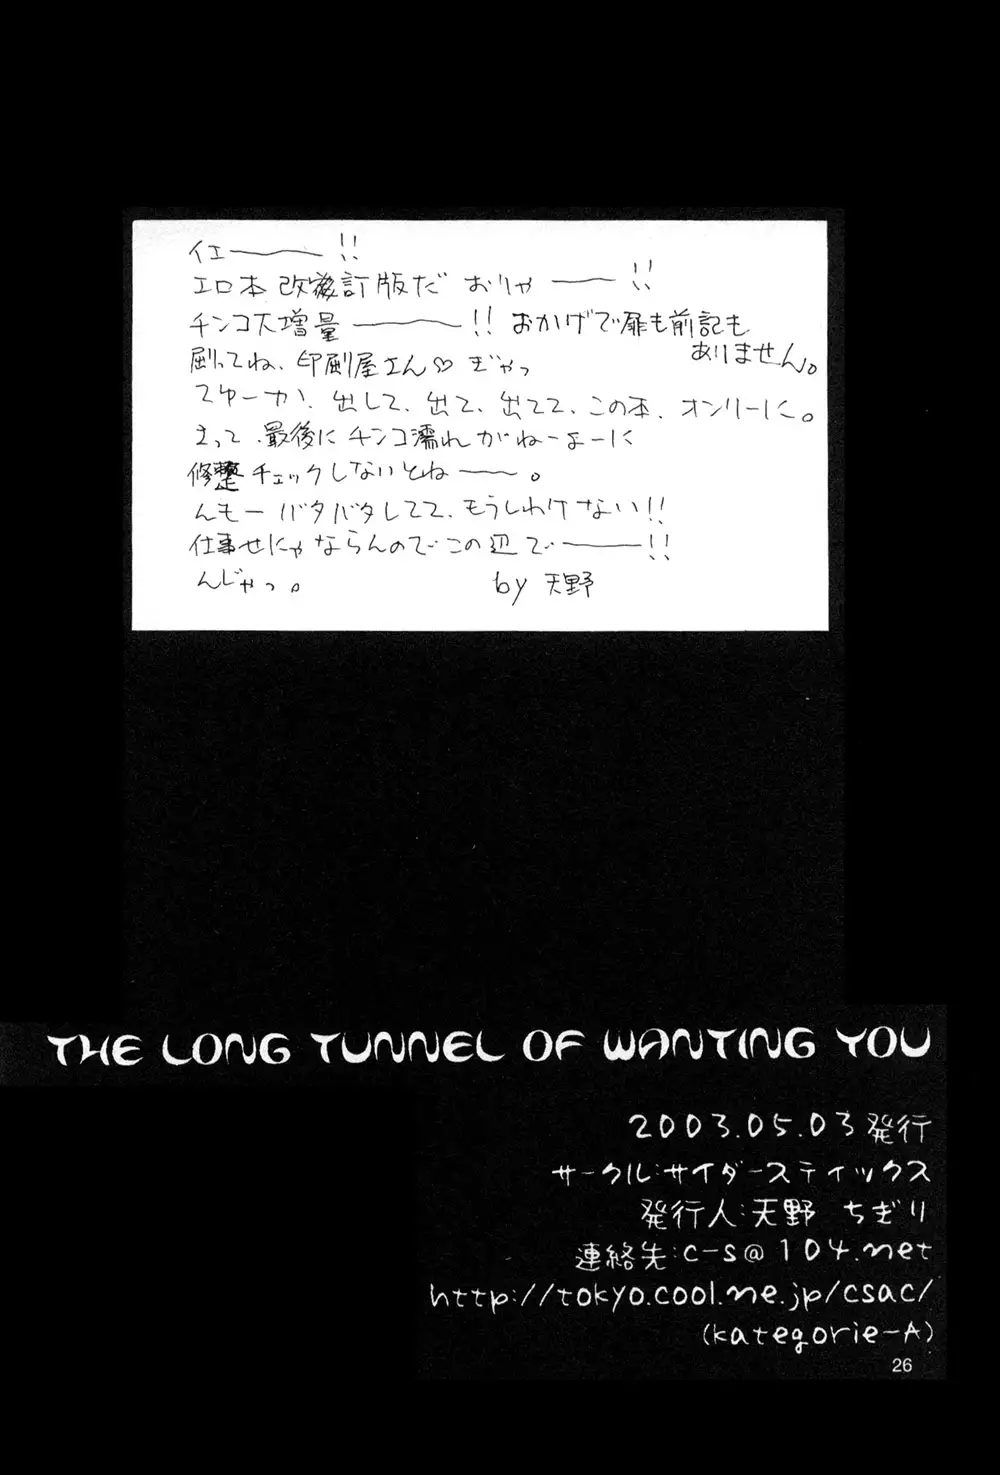 イエーー!!
エロ本改訂版だ おりゃーー!!
チンコ大増量ーー!! おかげで扉も前記も
ありません。
刷ってね、印刷屋さん♡ ぎゃっ
てゆーか、出して、出て、出てて、この本、オンリーに。
さって、最後にチンコ濡れがねーよーに
修整チェックしないとねー。
んもーバタバタしてて、もうしわけない!!
仕事せにゃならんのでこの辺でーー!!
んじゃっ。 by 天野
THE LONG TUNNEL OF WANTING YOU
2003.05.03発行
サークル:サイダースティックス
発行人:天野 ちぎり
連絡先:c-s@104.net
http://tokyo.cool.ne.jp/csac/
(kategorie-A)
26